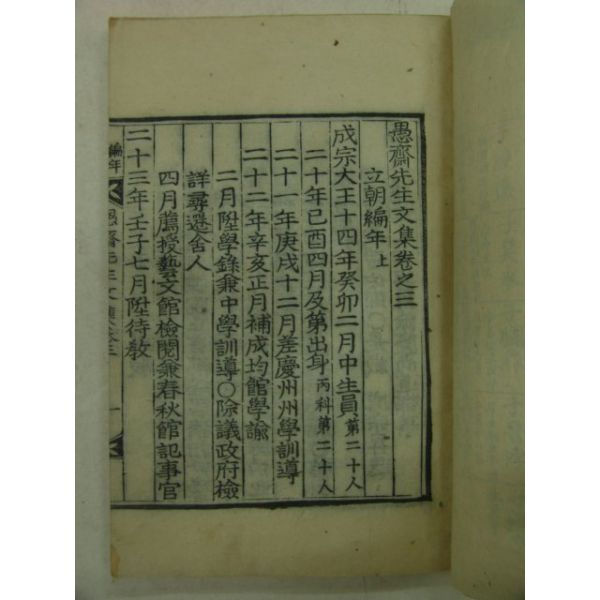 愚齋先生文集卷之三
立朝編年上
成宗大王十四年癸卯二月中生員第二十人
二十年己酉四月及第出身丙科第二十人
二十一年庚戌十二月差慶州州學訓導
二十二年辛亥正月補成均館學諭
二月陞學錄兼中學訓導○除議政府檢
詳尋遷舍人
四月薦授藝文館檢閱兼春秋館記事官
二十三年壬子七月陞待教
編年
愚齋先生文集卷三
一